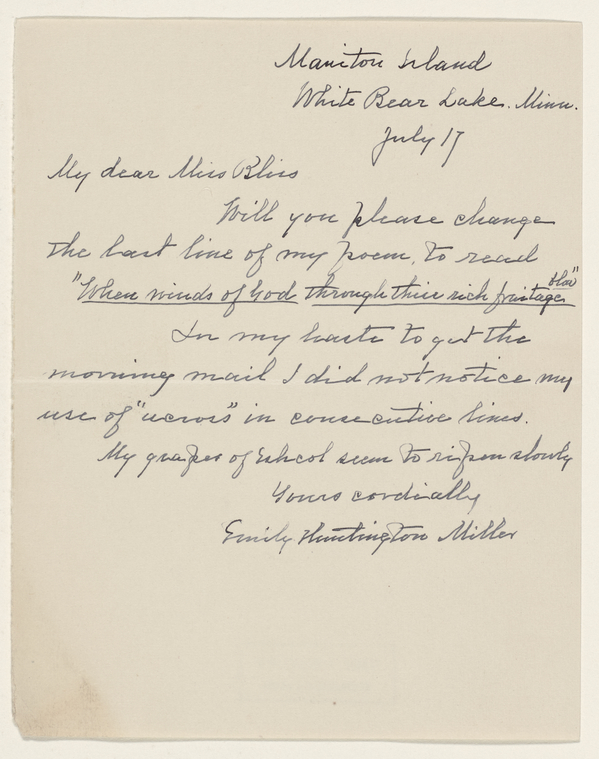 Manitou Island
White Bear Lake. Minn.
July 17
My dear Miss Bliss
Will you please change
the last line of my poem, to read
"When winds of God through thine rich fruitage blow"
In my haste to get the
morning mail I did not notice my
use of "across" in consecutive lines.
My grapes of Eshcol seem to ripen slowly
Yours cordially
Emily Huntington Miller